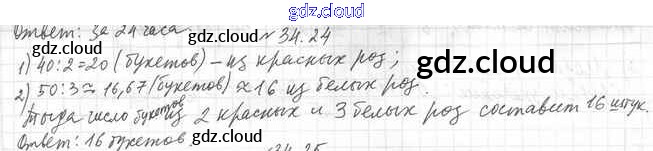 gdz.cloud
Ответ: за 24 часа
gdz.cloud
№ 34.24
1) 40:2=20 (букетов) – из красных роз;
gdz.cloud
2) 50:3≈16,67 (букетов) ≈ 16 из белых роз.
gdz.cloud
Тогда число букетов из 2 красных и 3 белых роз составит 16 штук.
gdz.cloud
Ответ: 16 букетов
gdz.cloud
34.25